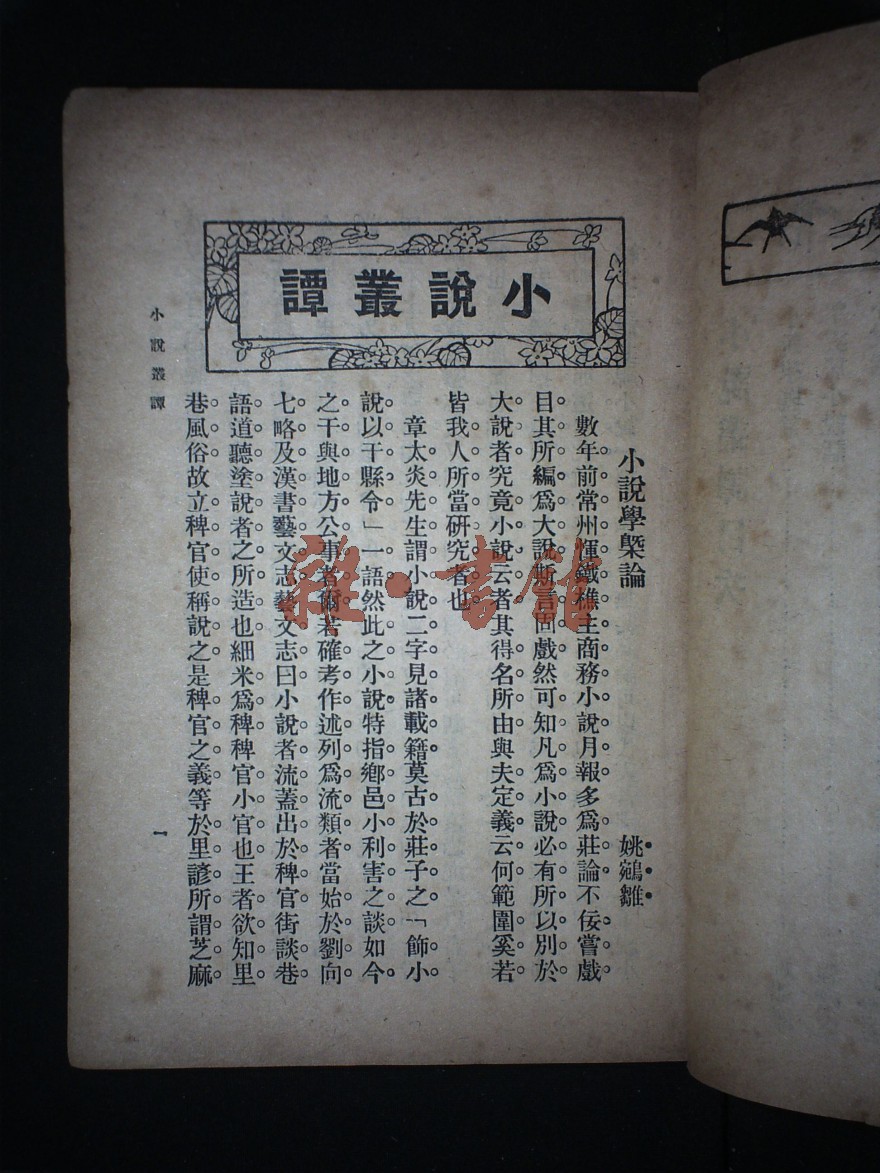 小說叢譚
小說學槩論
姚鵷雛
數年前常州惲鐵樵主商務小說月報多爲莊論不佞嘗戲
目其所編爲大說斯言固戲然可知凡爲小說必有所以別於
大說者究竟小說云者其得名所由與夫定義云何範圍奚若
皆我人所當硏究者也
章太炎先生謂小說二字見諸載籍莫古於莊子之「飾小
說以干縣令」一語然此之小說特指鄉邑小利害之談如今
之干與地方公事者爾若確考作述列爲流類者當始於劉向
七略及漢書藝文志藝文志曰小說者流蓋出於稗官街談巷
語道聽塗說者之所造也細米爲稗稗官小官也王者欲知里
巷風俗故立稗官使稱說之是稗官之義等於里諺所謂芝麻
小說叢譚
一
雜·書館